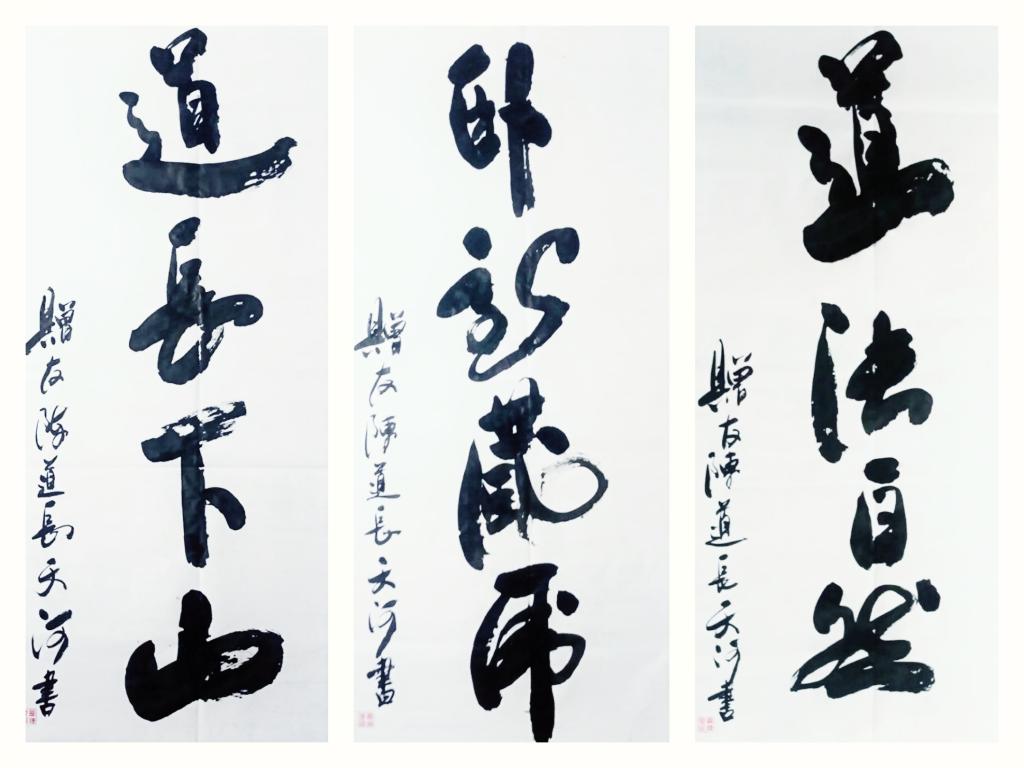 道長下山
贈友陳道長天河書
卧龍藏虎
贈友陳道長天河書
道法自然
贈友陳道長天河書